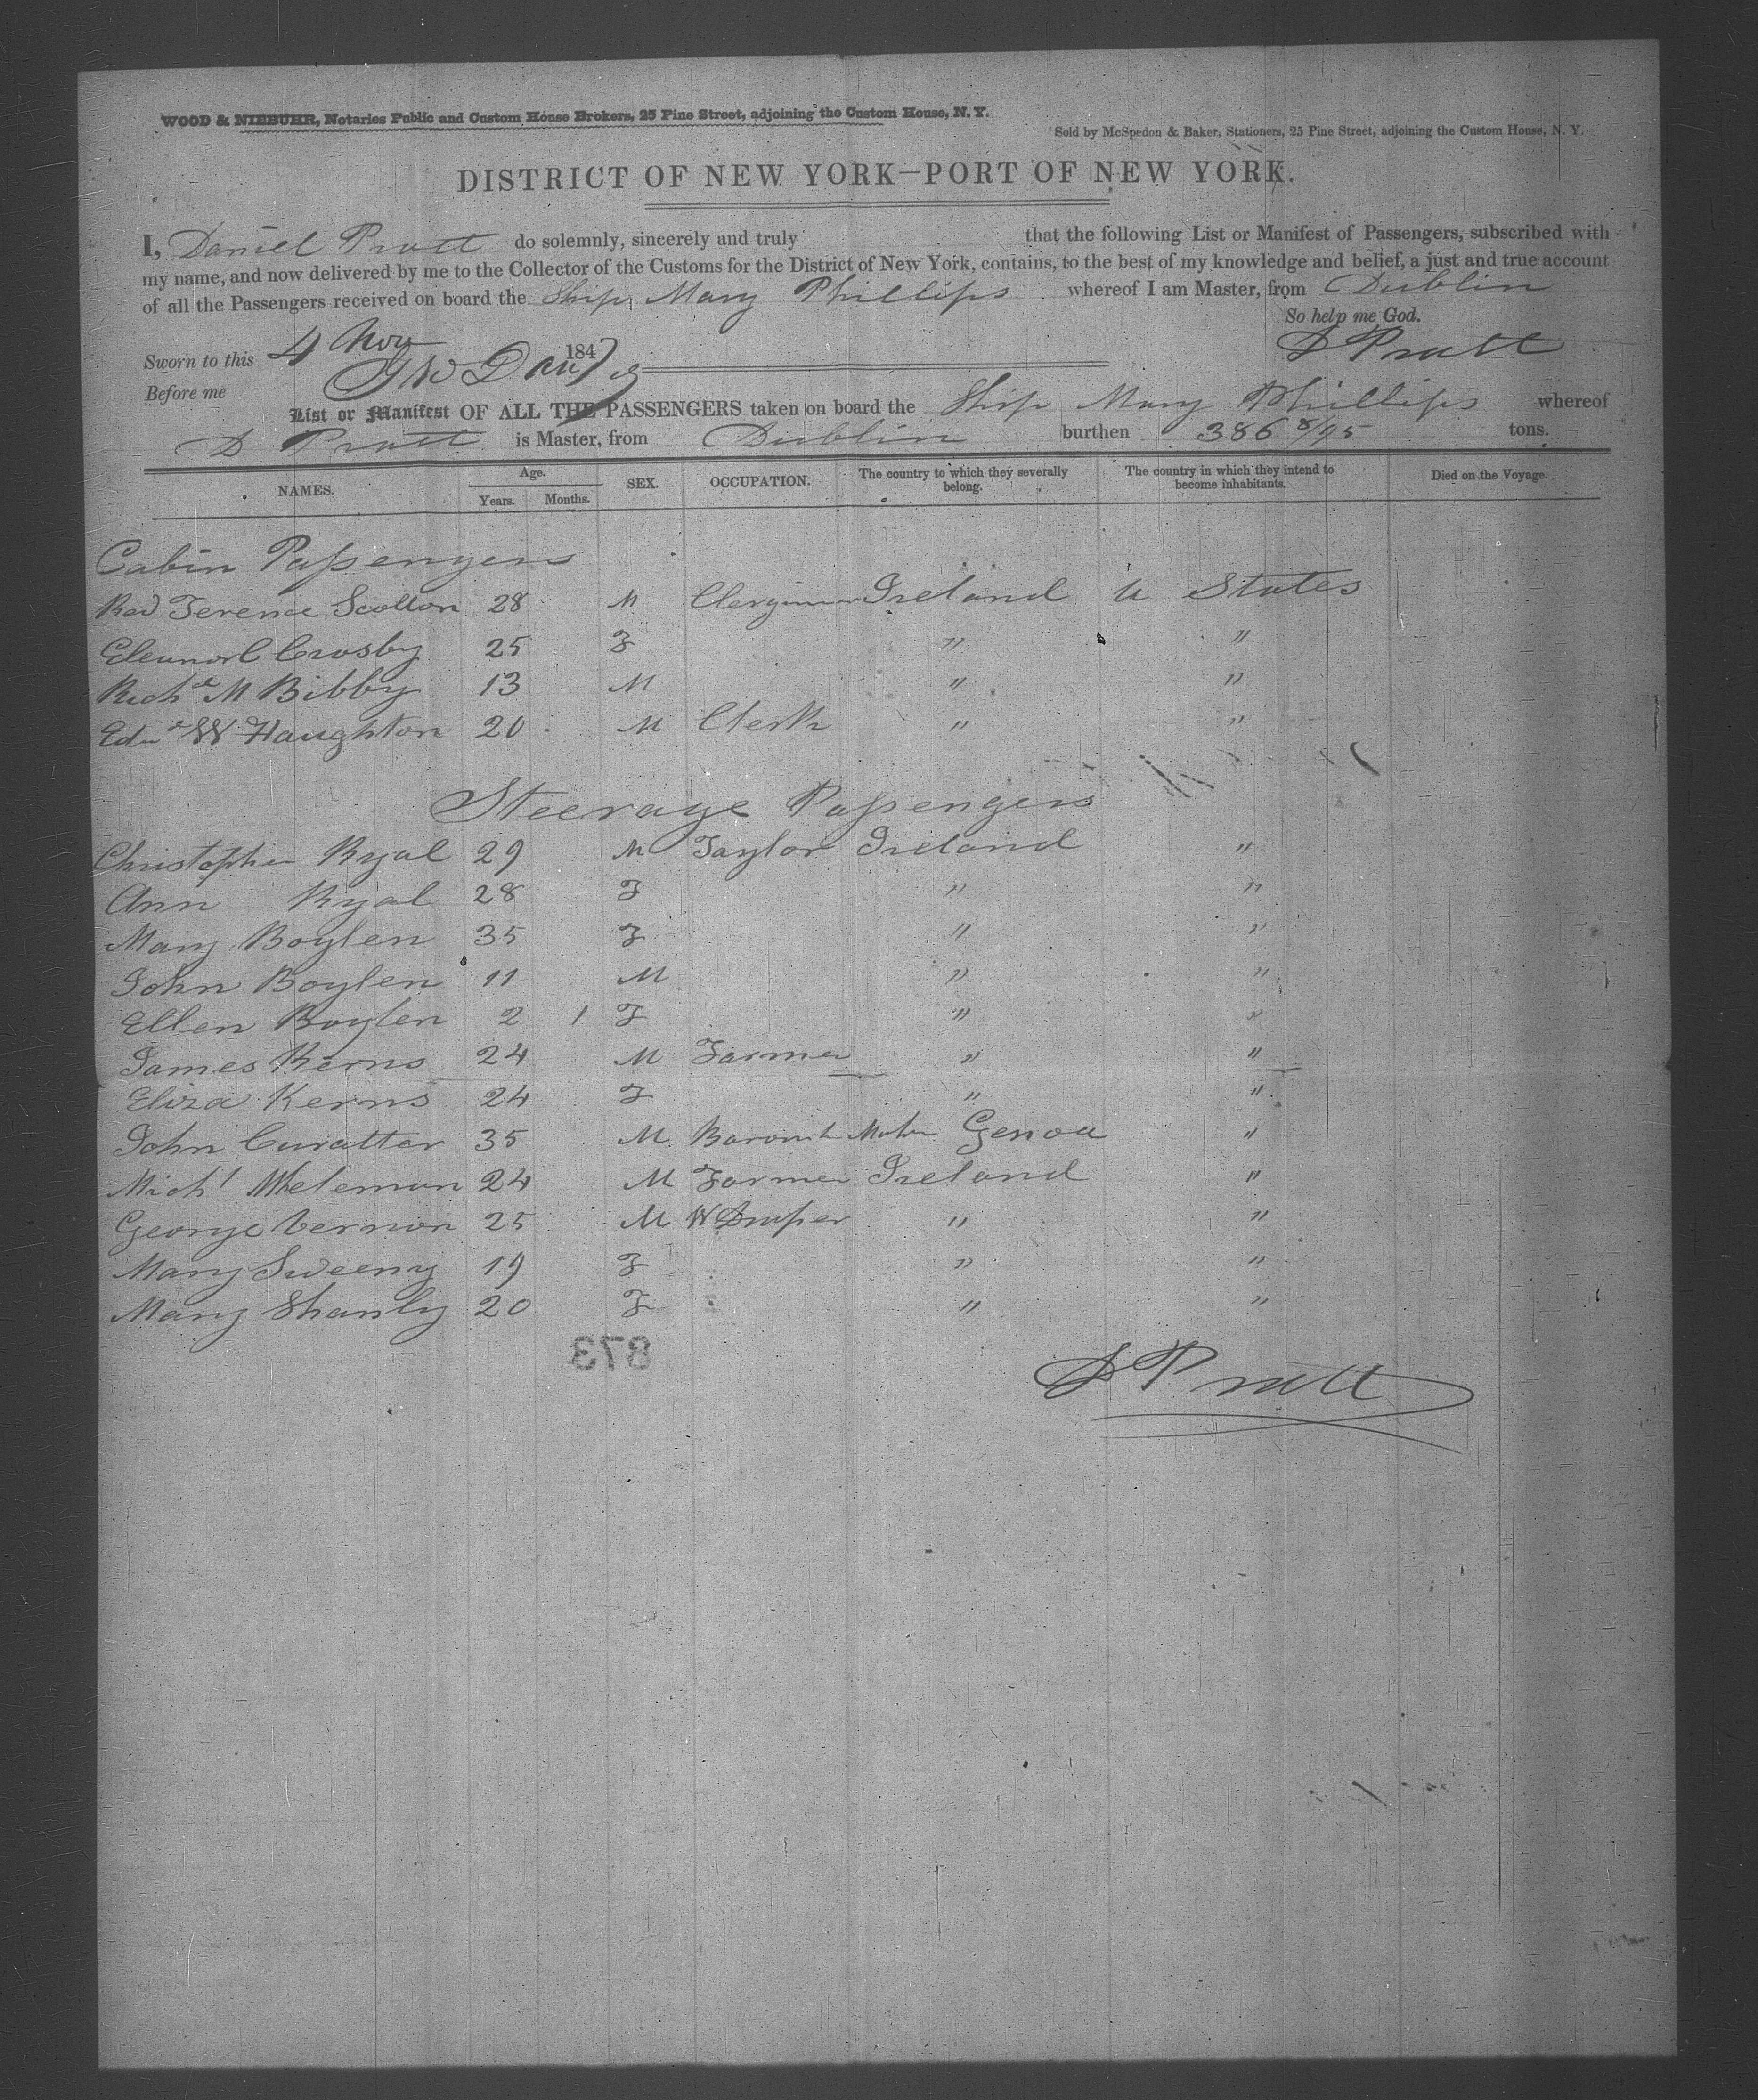 WOOD & NIEBUHR, Notaries Public and Custom House Brokers, 25 Pine Street, adjoining the Custom House, N. Y.
Sold by McSpedon & Baker, Stationers, 25 Pine Street, adjoining the Custom House, N. Y.
DISTRICT OF NEW YORK—PORT OF NEW YORK.
I, Daniel Pratt do solemnly, sincerely and truly that the following List or Manifest of Passengers, subscribed with
my name, and now delivered by me to the Collector of the Customs for the District of New York, contains, to the best of my knowledge and belief, a just and true account
of all the Passengers received on board the Ship Mary Phillips whereof I am Master, from Dublin
So help me God.
Sworn to this 4 Nov 1847 D Pratt
Before me
List or Manifest OF ALL THE PASSENGERS taken on board the Ship Mary Phillips whereof
D Pratt is Master, from Dublin burthen 386 8/95 tons.
NAMES. Age. Years. Months. SEX. OCCUPATION. The country to which they severally belong. The country in which they intend to become inhabitants. Died on the Voyage.
Cabin Passengers
Revd Terence Scollon 28 M Clergiman Ireland U States
Eleanor C Crosby 25 F " "
Richd M Bibby 13 M " "
Edwd W Haughton 20 M Clerk " "
Steerage Passengers
Christopher Ryal 29 M Taylor Ireland "
Ann Ryal 28 F " "
Mary Boylen 35 F " "
John Boylen 11 M " "
Ellen Boylen 2 1 F " "
James Kerns 24 M Farmer " "
Eliza Kerns 24 F " "
John Curatter 35 M Genoa "
Michl Wheleman 24 M Farmer Ireland "
George Vernon 25 M W Draper " "
Mary Sweeny 19 F " "
Mary Shanly 20 F " "
873
D Pratt